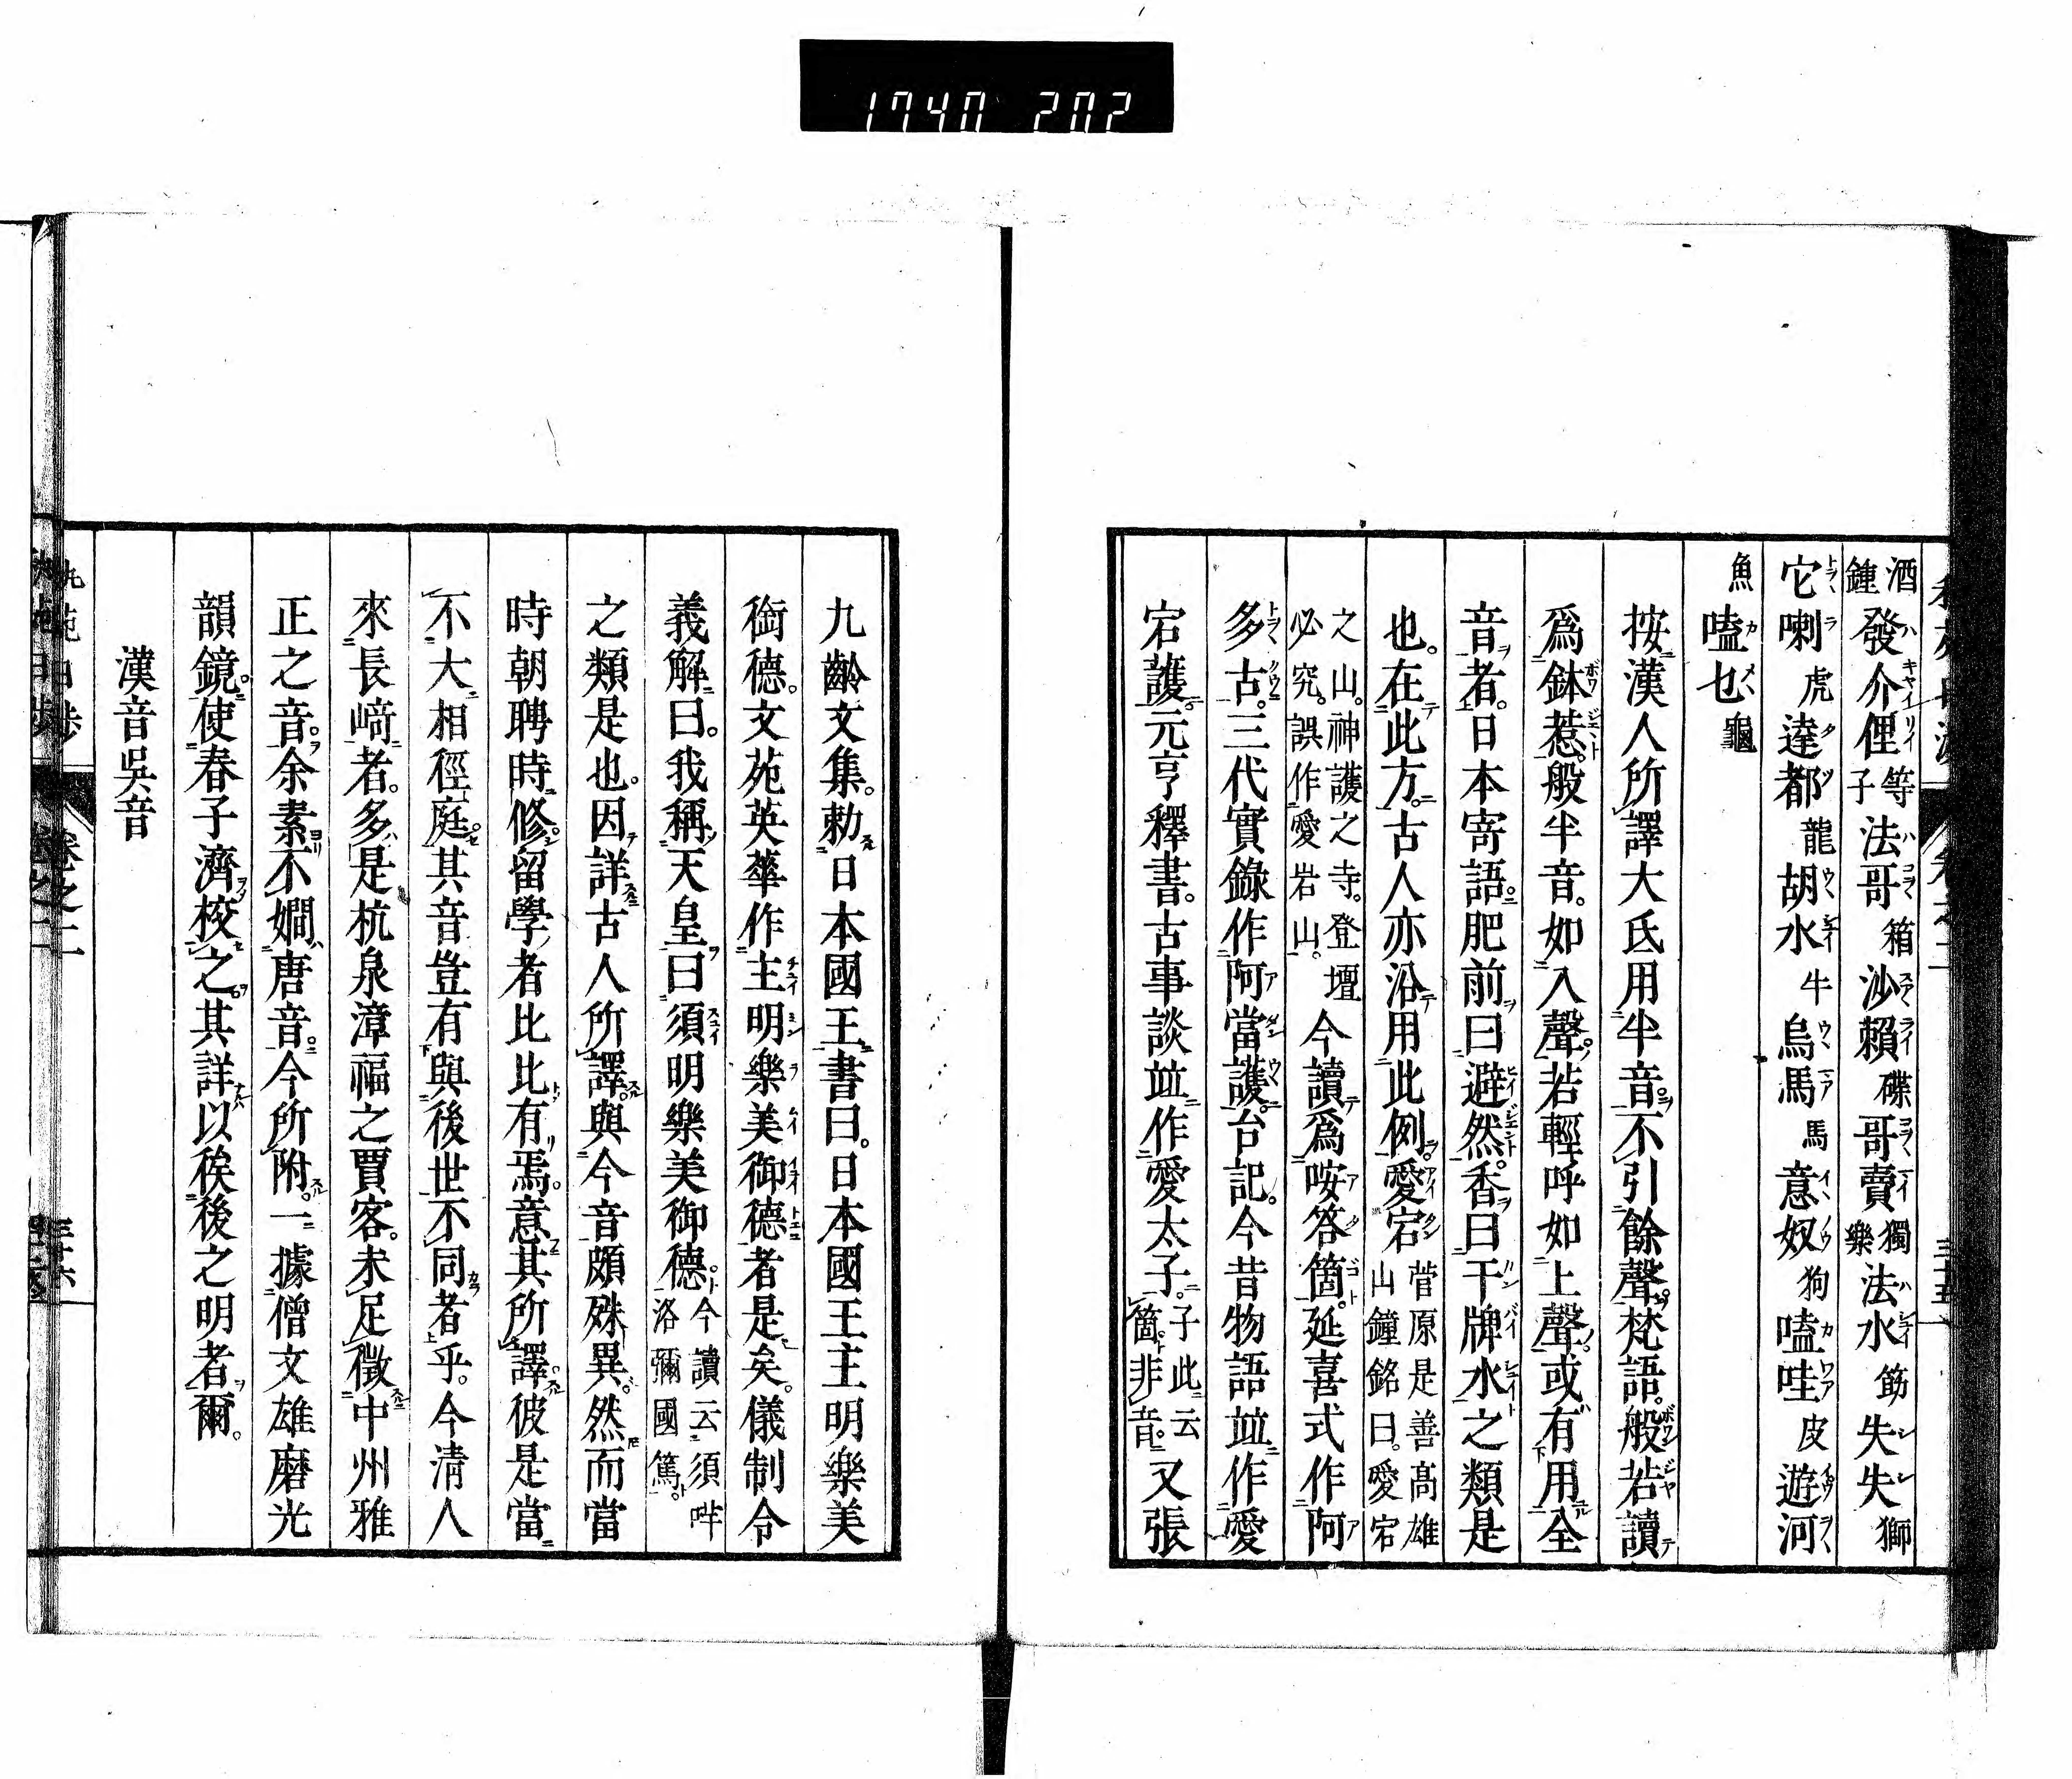 1740 202
酒鍾發介俚等子法哥箱沙賴碟哥賣獨樂法水筯失失獅
它喇虎達都龍胡水牛烏馬馬意奴狗嗑哇皮遊河
魚嗑乜龜
按漢人所譯大氐用半音。不引餘聲。梵語。般若讀
爲鉢惹。般半音。如入聲。若輕呼如上聲。或有用全
音者。日本寄語。肥前曰避然。香曰干牌水之類是
也。在此方。古人亦沿用此例。愛宕菅原是善高雄山鐘銘曰。愛宕
之山。神護之寺。登壇必究。誤作愛岩山。今讀爲咹答箇。延喜式作阿
多古。三代實錄作阿當護。台記。今昔物語並作愛
宕護。元亨釋書。古事談並作愛太子。子此云箇。非音。又張
九齡文集。勅日本國王書曰。日本國王主明樂美
御德。文苑英華作主明樂美御德者是矣。儀制令
義解曰。我稱天皇曰須明樂美御德。今讀云須哶洛彌國篤。
之類是也。因詳古人所譯。與今音頗殊異。然而當
時朝聘時。修留學者比比有焉。意其所譯。彼是當
不大相徑庭。其音豈有與後世不同者乎。今清人
來長﨑者。多是杭泉漳福之賈客。未足徵中州雅
正之音。余素不嫺唐音。今所附。一據僧文雄磨光
韻鏡。使春子濟校之。其詳以俟後之明者爾。
漢音吳音
卷之二